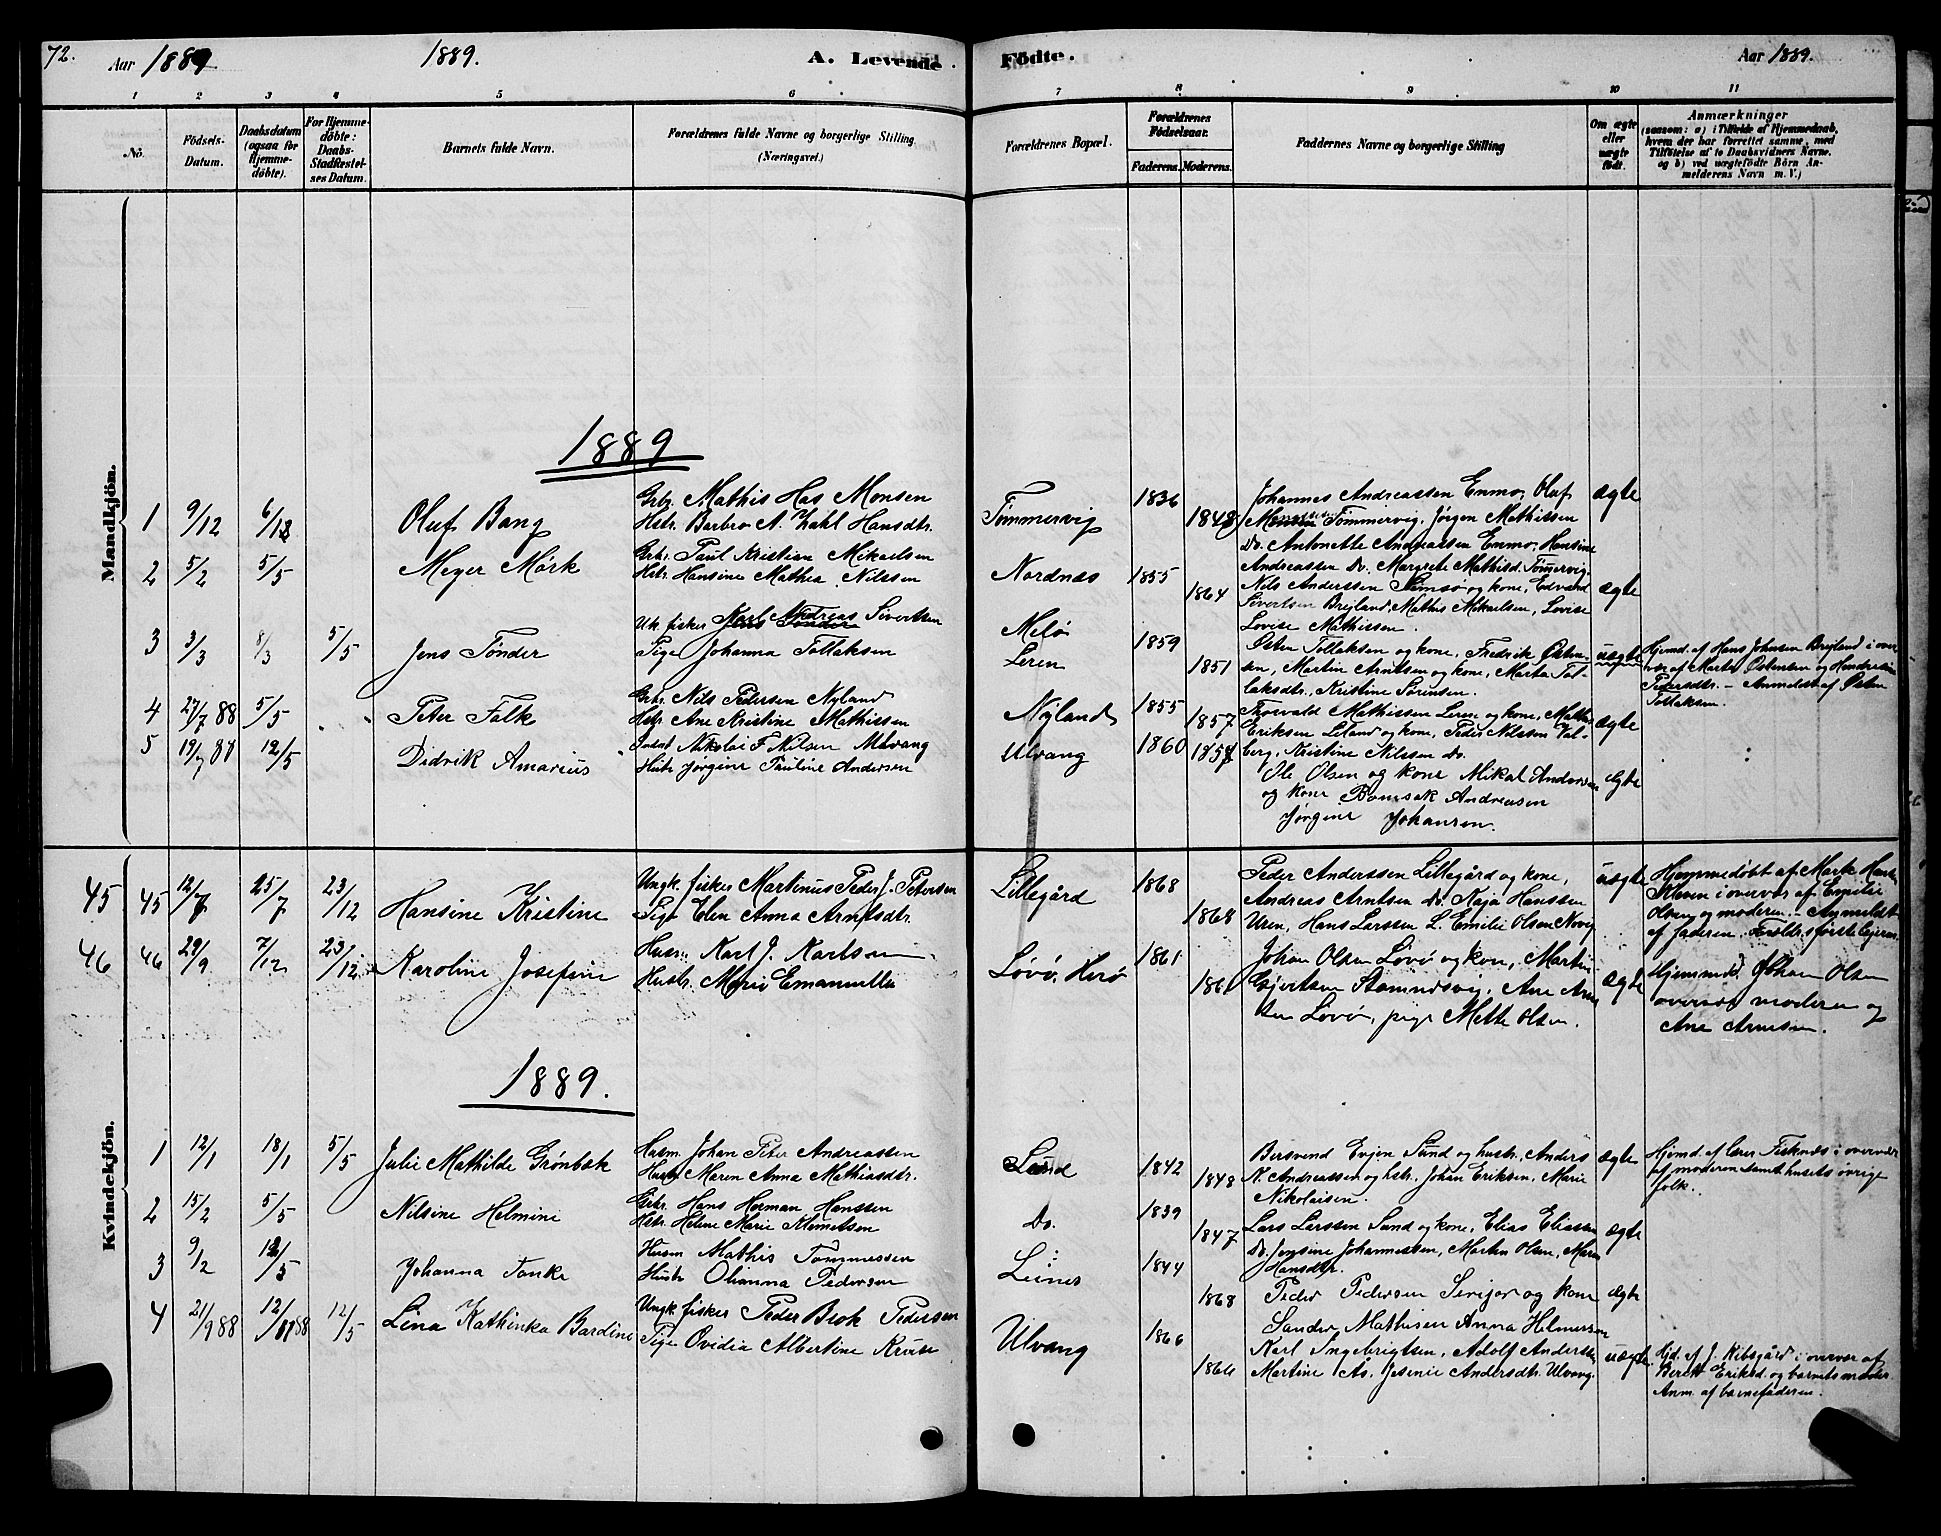 72.
Aar 1889
1889.
A. Levende
Födte.
Aar 1889.
1 2 3 4 5 6
7 8 9 10 11
No.
Födsels-
Datum.
Daabsdatum
(ogsaa for
Hjemme-
döbte).
For Hjemme-
döbte:
Daabs-
Stadfestel-
ses Datum.
Barnets fulde Navn.
Forældrenes fulde Navne og borgerlige Stilling.
(Næringsvei.)
Forældrenes Bopæl.
Forældrenes
Födselsaar.
Faderens. Moderens.
Faddernes Navne og borgerlige Stilling
Om ægte
eller
uægte
födt.
Anmærkninger
(saasom: a) i Tilfælde af Hjemmedaab,
hvem der har forrettet samme, med
Tilföielse af to Daabsvidners Navne,
og b) ved uægtefödte Börn An-
melderens Navn m. V.)
Mandkjön.
1889
1 9/12 6/12 Oluf Bang
Grbr. Mathis Has Monsen
Hstr. Barbro A. Zahl Hansdtr.
Tømmervig 1836 1848
Johannes Andreassen Enmo, Oluf
Tømmervig, Jørgen Mathissen
Do. Antonette Andreassen Enmo, Hansine
Andreassen Do. Margrete Mathisd. Tømervig
ægte
2 5/2 5/5 Meyer Mörk
Grbr. Paul Kristian Mikaelsen
Hstr. Hansine Mathea Nilssen
Nordnæs 1855 1864
Nils Anderssen Sømsø og kone, Edvard
Sivertsen Brejland, Mathis Mikaelsen, Lovise
Lovise Mathissen.
ægte
3 3/3 8/3 5/5 Jens Tønder
Uk. fisker Karl Andreas Sivertsen
Pige Johanna Tollaksen
Melø
Leren
1859 1851
Østen Tollaksen og kone, Fredrik Østen-
sen, Martin Arntsen og kone, Marta Tol-
laksdtr., Kristine Sørensen.
uægte
Hjemd. af Hans Johnsen Brejland i over-
vær af Marte Østensen og Hendrikine
Pedersdtr. – Anmeldt af Østen
Tollaksen.
4 27/7 88 5/5 Peter Falk
Grbr. Nils Pedersen Nyland
Hstr. Ane Kristine Mathissen
Nyland 1855 1857
Thorvald Mathissen Leren og kone, Mathis
Eriksen Leland og kone, Peder Nilssen Val-
berg, Kristine Nilssen Do.
ægte
5 19/7 88 12/5 Didrik Amarius
Indst. Nikolai F. Nilsen Ulvang
Hust. Jørgine Pauline Andersen
Ulvang 1860 1857
Ole Olsen og kone Mikal Andersen
og kone Andreasen
Jørgine Johansen.
ægte
45 45 12/7 25/7 23/12 Hansine Kristine
Ungk. fisker Martinus Peder J. Petersen
Pige Elen Anna Arntsdtr.
Lillegård 1868 1868
Peder Anderssen Lillegård og kone,
Andreas Arntsen Do. Kaja Hanssen
Uren, Hans Larssen L. Emilie Olsen Novig
uægte
Hjemmedöbt af Mark
i overvær af Emilie
Olsen og moderen. – Anmeldt
af faderen. Forældres første lejerm.
46 46 29/9 7/12 23/12 Karoline Josefine
Husm. Karl J. Karlsen
Hustr. Marie Emanuelle
Løvø, Herø 1861 1861
Johan Olsen Løvø og kone, Martin
Gjertsen Stamnesvig, Ane Arnt
sen Løvø, pige Mette Olsen.
ægte
Hjemmed. Johan Olsen
overvær moderen og
Ane Arntsen.
Kvindekjön.
1889.
1 12/1 18/1 5/5 Julie Mathilde Grønbæk
Husm. Johan Peter Andreassen
Hustr. Maren Anna Mathiasdtr.
Sand 1842 1848
Bersvend Evjen Sund og hustr. Anders
N. Andreassen og hstr., Johan Eriksen, Marie
Nikolaisen.
ægte
Hjemd. af Lærer Fisknæs i overvær
af moderen samt husets øvrige
folk.
2 15/2 5/5 Nilsine Helmine
Grbr. Hans Herman Hanssen
Hstr. Helene Marie
Do. 1839 1847
Lars Larssen Sand og kone, Elias Eliassen
Do. Jensine Johannessen, Morten Olsen, Maren
Hansdtr.
ægte
3 9/2 12/5 Johanna Tonke
Husm. Mathis Tommessen
Hustr. Olianna Pedersen
Leines 1844 1868
Peder Pedersen og kone
Sander Mathisen Anna Helmersen
ægte
4 21/9 88 12/ 88 12/5 Lina Kathinka Bardine
Ungk. fisker Peder Beck Pedersen
Pige Ovidia Albertine Kruse
Ulvang 1866 1866
Karl Ingebrigtsen, Adolf Andersen
Martine Ås. Jesinie Andersdtr. Ulvang
uægte
Hjd. af J. Ribsgård i overvær af
Berett Eriksd. og barnets moder.
Anm. af barnefaderen.